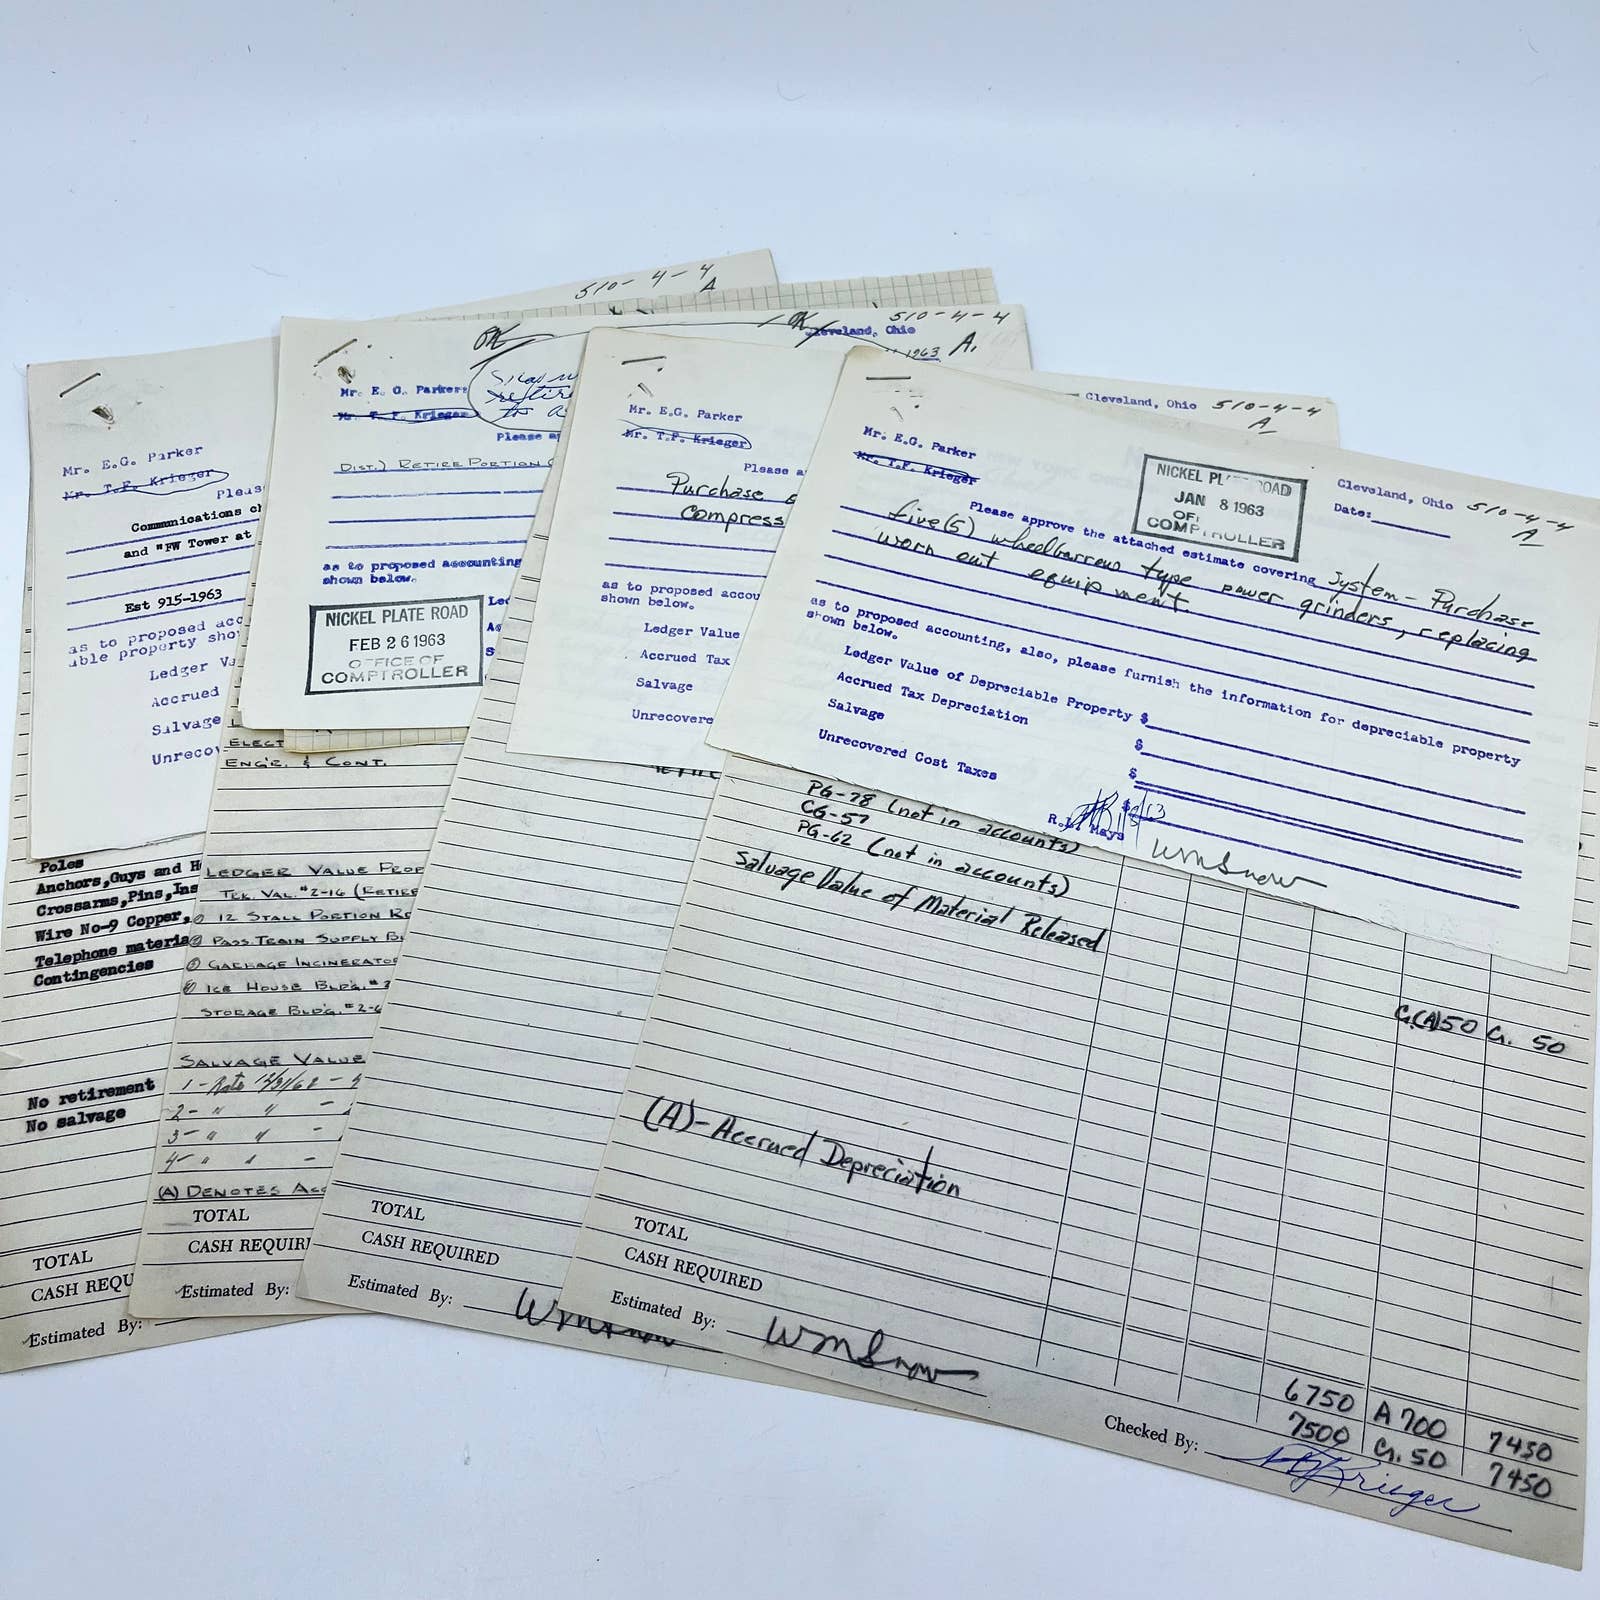 510-4-4
A
Mr. E.G. Parker
Mr. T.F. Krieger
Pleas
Communications ch
and "FW Tower at
Est 915-1963
as to proposed acc
able property sho
Ledger Va
Accrued
Salvage
Unrecov
Poles
Anchors,Guys and H
Crossarms,Pins,Ins
Wire No-9 Copper,
Telephone materia
Contingencies
No retirement
No salvage
TOTAL
CASH REQU
Estimated By:
OK
Mr. E. G. Parker
Mr. T. F. Krieger
Please ap
DIST.) RETIRE PORTION
as to proposed accounting
shown below.
NICKEL PLATE ROAD
FEB 26 1963
OFFICE OF
COMPTROLLER
Led
Ac
S
ELECT
ENG'R. & CONT.
LEDGER VALUE PROP
TEK. VAL. #2-16 (RETIRE
① 12 STALL PORTION RO
② PASS. TRAIN SUPPLY BL
③ GARBAGE INCINERATOR
④ ICE HOUSE BLDG. #2
STORAGE BLDG. #2-6
SALVAGE VALUE
1 - Rate 12/31/62 -
2 - " " -
3 - " " -
4 - " " -
(A) DENOTES ACC
TOTAL
CASH REQUIR
Estimated By:
OK
510-4-4
Cleveland, Ohio
1963 A.
Mr. E.G. Parker
Mr. T.F. Krieger
Please a
Purchase
Compress
as to proposed accou
shown below.
Ledger Value
Accrued Tax
Salvage
Unrecovere
TOTAL
CASH REQUIRED
Estimated By:
Cleveland, Ohio 510-4-4
A
Mr. E.G. Parker
Mr. T.F. Krieger
NICKEL PLATE ROAD
JAN 8 1963
OF
COMPTROLLER
Cleveland, Ohio 510-4-4
Date: A
Please approve the attached estimate covering System - Purchase
five(5) wheelbarrow type power grinders, replacing
worn out equipment.
as to proposed accounting, also, please furnish the information for depreciable property
shown below.
Ledger Value of Depreciable Property $
Accrued Tax Depreciation $
Salvage $
Unrecovered Cost Taxes $
R.L. Mays
WmSnow
PG-78 (not in accounts)
CG-57
PG-62 (not in accounts)
Salvage Value of Material Released
Cr.(A)50 Cr. 50
(A)-Accrued Depreciation
TOTAL 6750 A 700 7450
CASH REQUIRED 7500 Cr. 50 7450
Estimated By: WmSnow
Checked By: Krieger